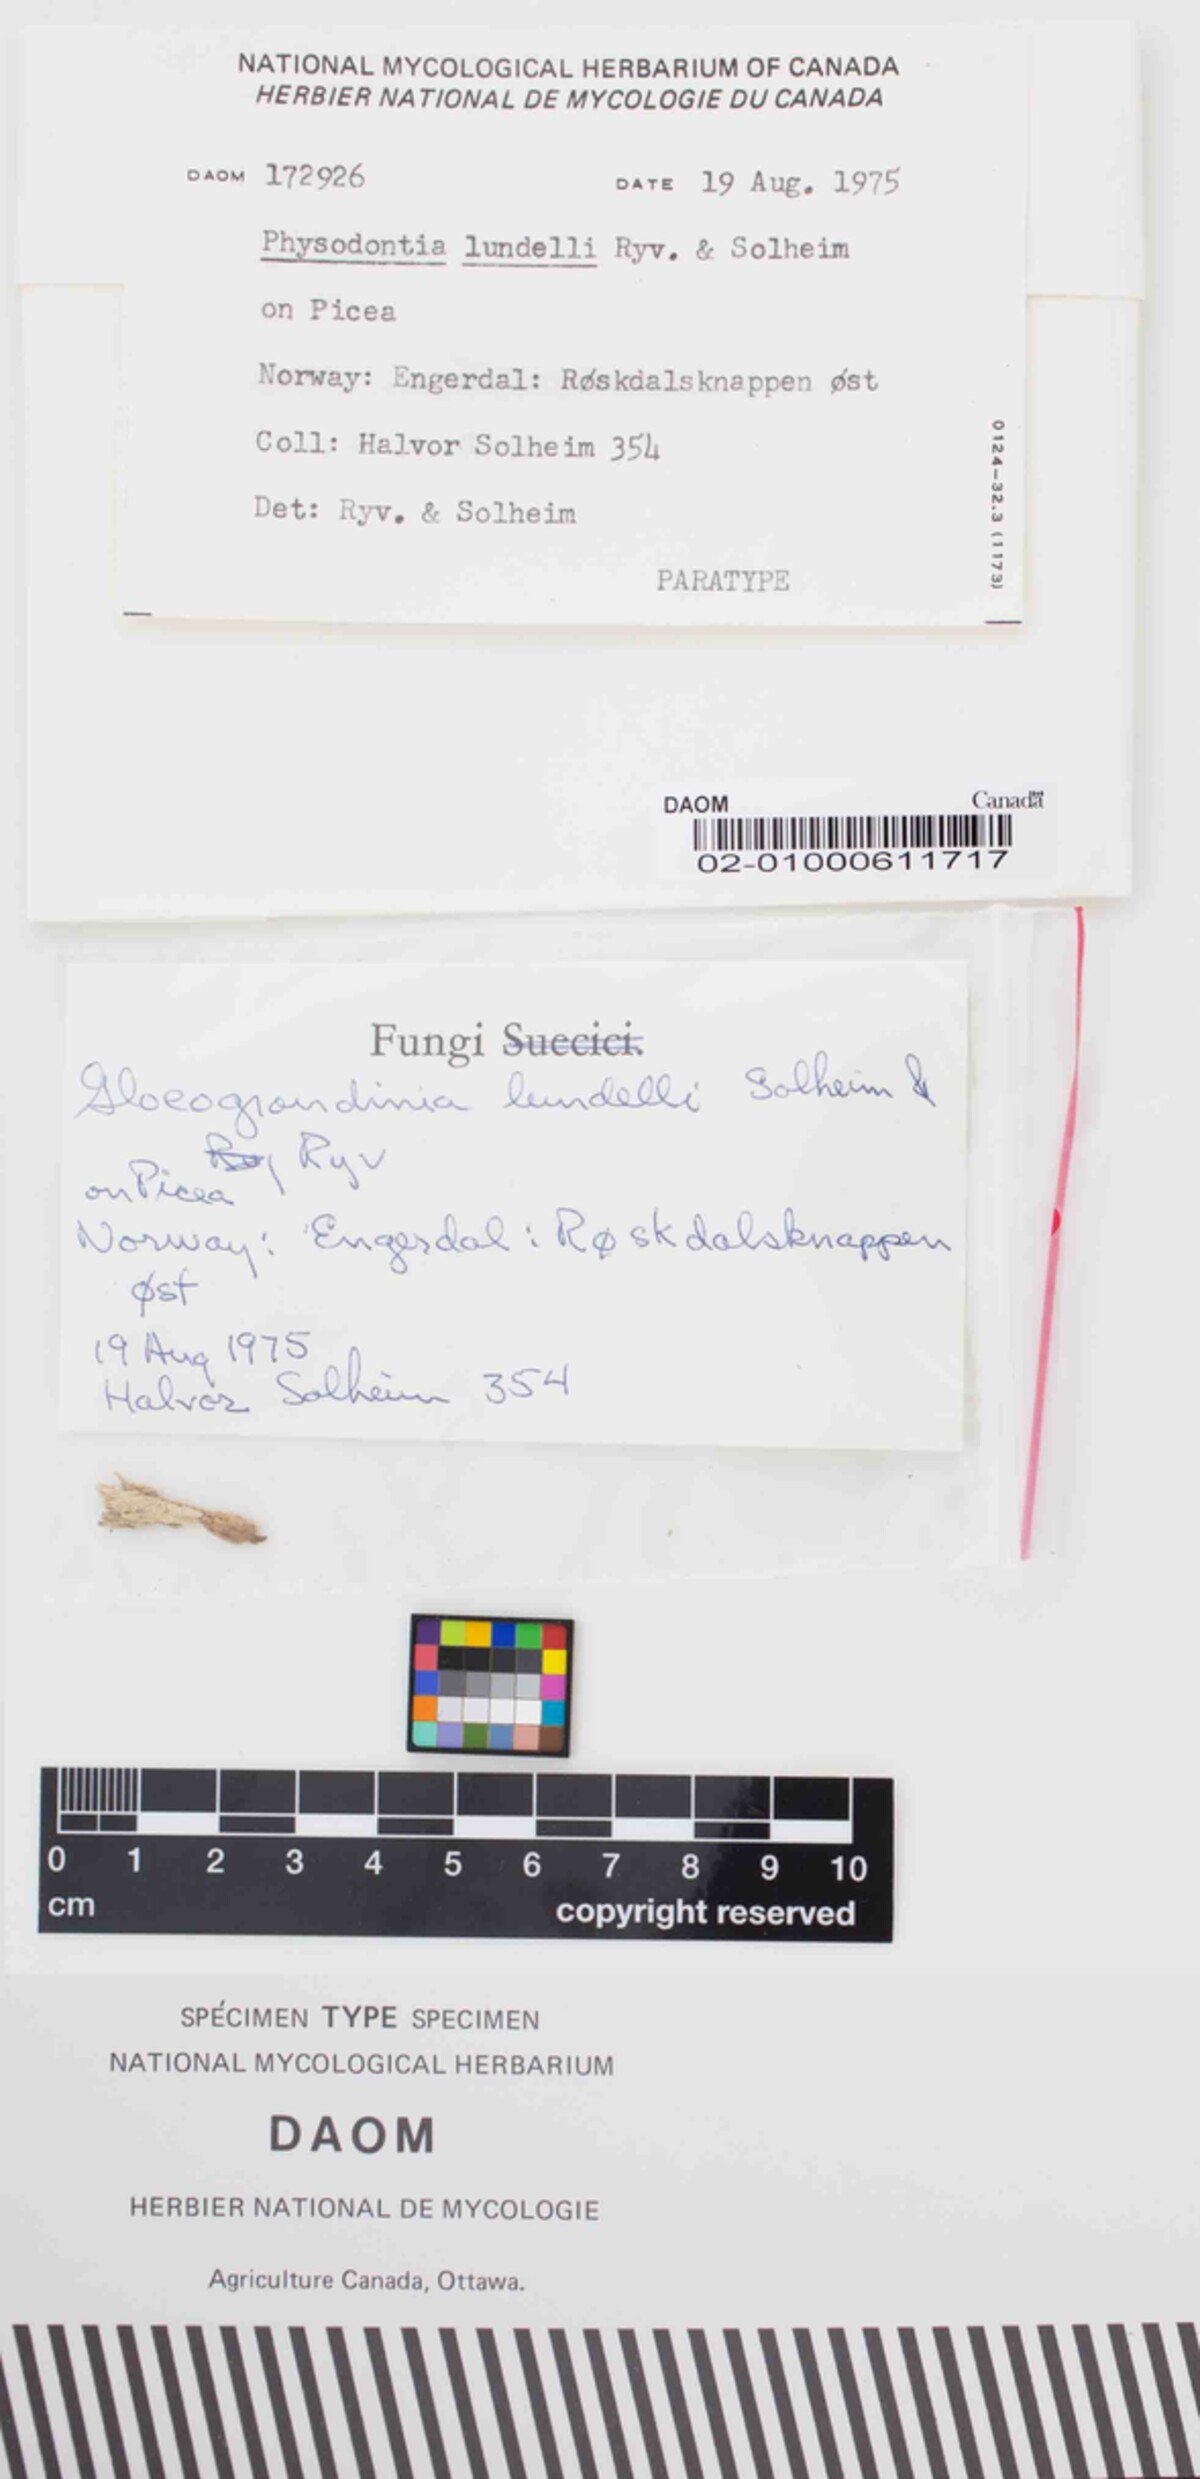 NATIONAL MYCOLOGICAL HERBARIUM OF CANADA
HERBIER NATIONAL DE MYCOLOGIE DU CANADA
DAOM 172926 DATE 19 Aug. 1975
Physodontia lundelli Ryv. & Solheim
on Picea
Norway: Engerdal: Røskdalsknappen øst
Coll: Halvor Solheim 354
Det: Ryv. & Solheim
PARATYPE
0124-32.3 (1173)
DAOM Canada
02-01000611717
Fungi Suecici.
Gloeograndinia lundelli Solheim &
Ryv
on Picea
Norway: Engerdal: Røskdalsknappen
øst
19 Aug 1975
Halvor Solheim 354
0 1 2 3 4 5 6 7 8 9 10
cm copyright reserved
SPÉCIMEN TYPE SPECIMEN
NATIONAL MYCOLOGICAL HERBARIUM
DAOM
HERBIER NATIONAL DE MYCOLOGIE
Agriculture Canada, Ottawa.